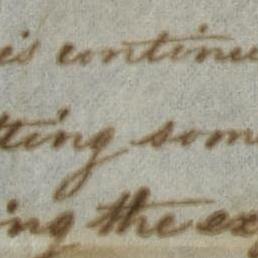 is continu
tting som
ing the ex